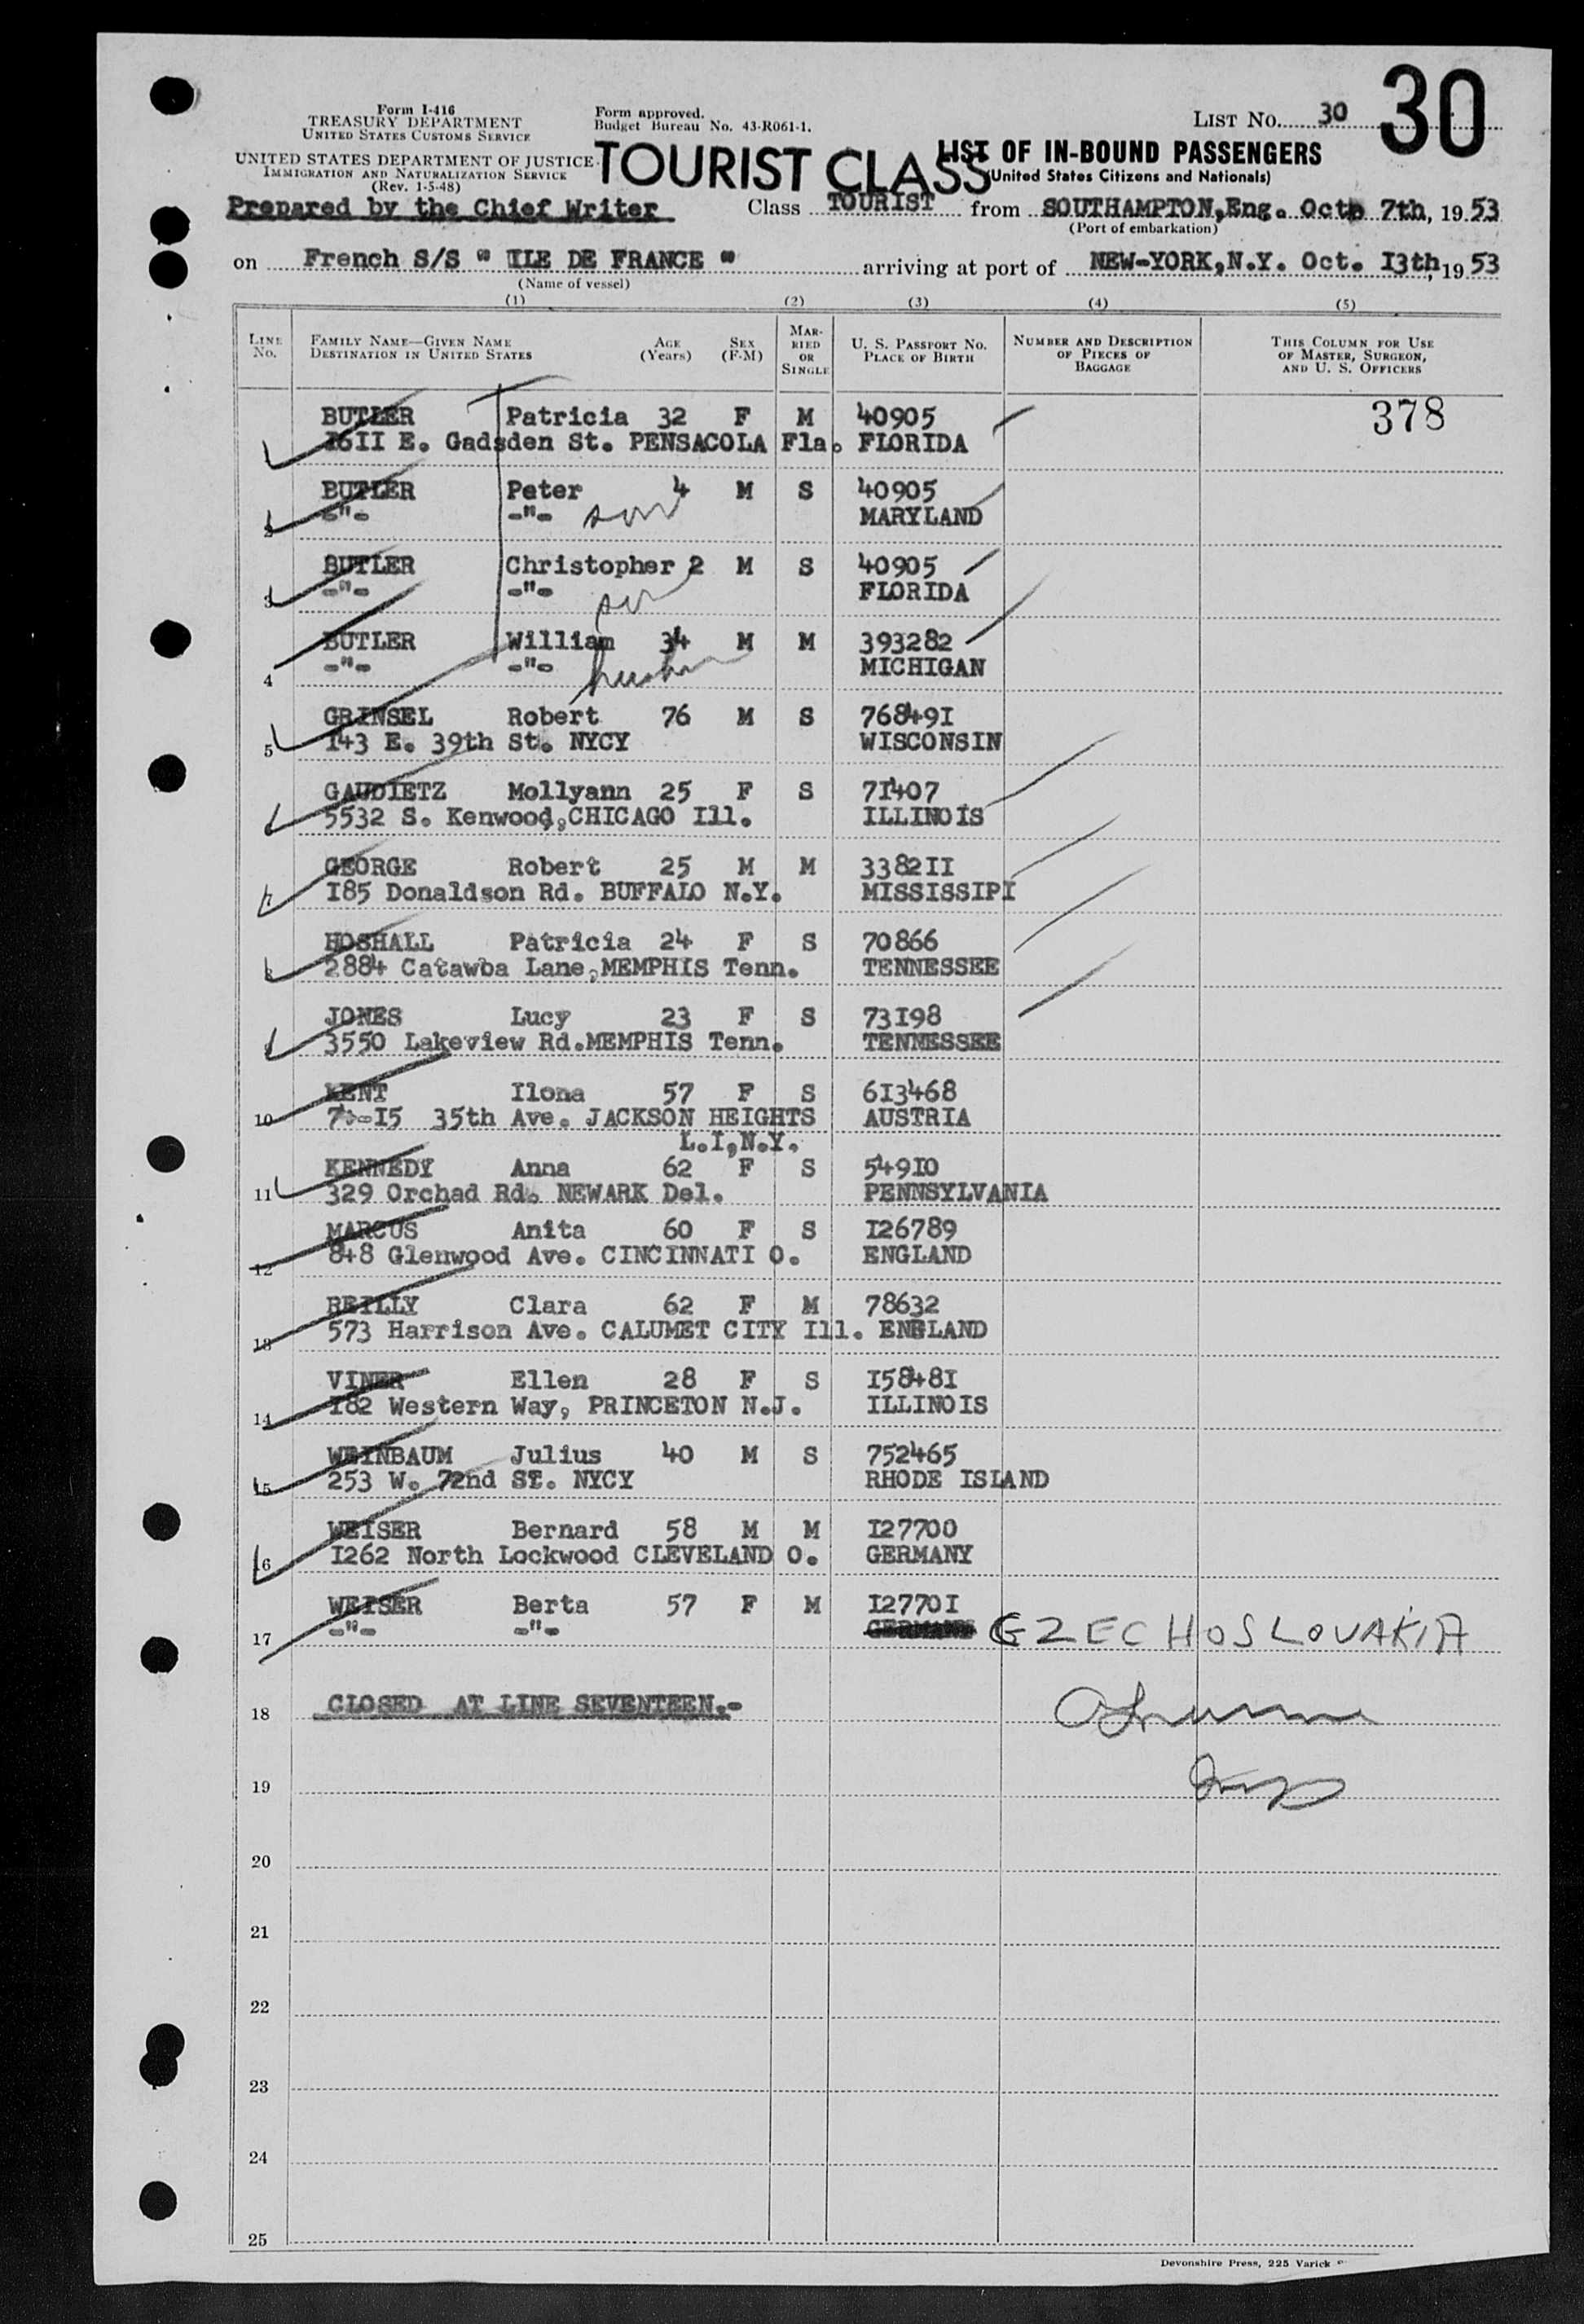 Form I-416
TREASURY DEPARTMENT
UNITED STATES CUSTOMS SERVICE
UNITED STATES DEPARTMENT OF JUSTICE
IMMIGRATION AND NATURALIZATION SERVICE
(Rev. 1-5-48)
Form approved.
Budget Bureau No. 43-R061-1.
LIST No. 30
30
TOURIST CLASS
LIST OF IN-BOUND PASSENGERS
(United States Citizens and Nationals)
Prepared by the Chief Writer Class TOURIST from SOUTHAMPTON,Eng. Oct. 7th, 19 53
(Port of embarkation)
on French S/S " ILE DE FRANCE " arriving at port of NEW-YORK,N.Y. Oct. I3th, 19 53
(Name of vessel)
(1) (2) (3) (4) (5)
LINE No. FAMILY NAME—GIVEN NAME DESTINATION IN UNITED STATES AGE (Years) SEX (F-M) MARRIED OR SINGLE U. S. PASSPORT NO. PLACE OF BIRTH NUMBER AND DESCRIPTION OF PIECES OF BAGGAGE THIS COLUMN FOR USE OF MASTER, SURGEON, AND U. S. OFFICERS
BUTLER Patricia 32 F M 40905 378
I6II E. Gadsden St. PENSACOLA Fla. FLORIDA
BUTLER Peter 4 M S 40905
2 -"- -"- son MARYLAND
BUTLER Christopher 2 M S 40905
3 -"- -"- son FLORIDA
BUTLER William 34 M M 393282
4 -"- -"- MICHIGAN
GRINSEL Robert 76 M S 76849I
5 I43 E. 39th St. NYCY WISCONSIN
GAUDIETZ Mollyann 25 F S 7I407
5532 S. Kenwood,CHICAGO Ill. ILLINOIS
GEORGE Robert 25 M M 3382II
7 I85 Donaldson Rd. BUFFALO N.Y. MISSISSIPI
HOSHALL Patricia 24 F S 70866
8 2884 Catawba Lane,MEMPHIS Tenn. TENNESSEE
JONES Lucy 23 F S 73I98
9 3550 Lakeview Rd.MEMPHIS Tenn. TENNESSEE
KENT Ilona 57 F S 6I3468
10 35th Ave. JACKSON HEIGHTS AUSTRIA
L.I,N.Y.
KENNEDY Anna 62 F S 549I0
11 329 Orchad Rd. NEWARK Del. PENNSYLVANIA
MARCUS Anita 60 F S I26789
12 848 Glenwood Ave. CINCINNATI O. ENGLAND
REILLY Clara 62 F M 78632
13 573 Harrison Ave. CALUMET CITY Ill. ENGLAND
VINER Ellen 28 F S I5848I
14 I82 Western Way, PRINCETON N.J. ILLINOIS
WEINBAUM Julius 40 M S 752465
15 253 W. 72nd ST. NYCY RHODE ISLAND
WEISER Bernard 58 M M I27700
16 I262 North Lockwood CLEVELAND O. GERMANY
WEISER Berta 57 F M I2770I
17 -"- -"- GERMANY CZECHOSLOVAKIA
18 CLOSED AT LINE SEVENTEEN.-
19
20
21
22
23
24
25
Devonshire Press, 225 Varick